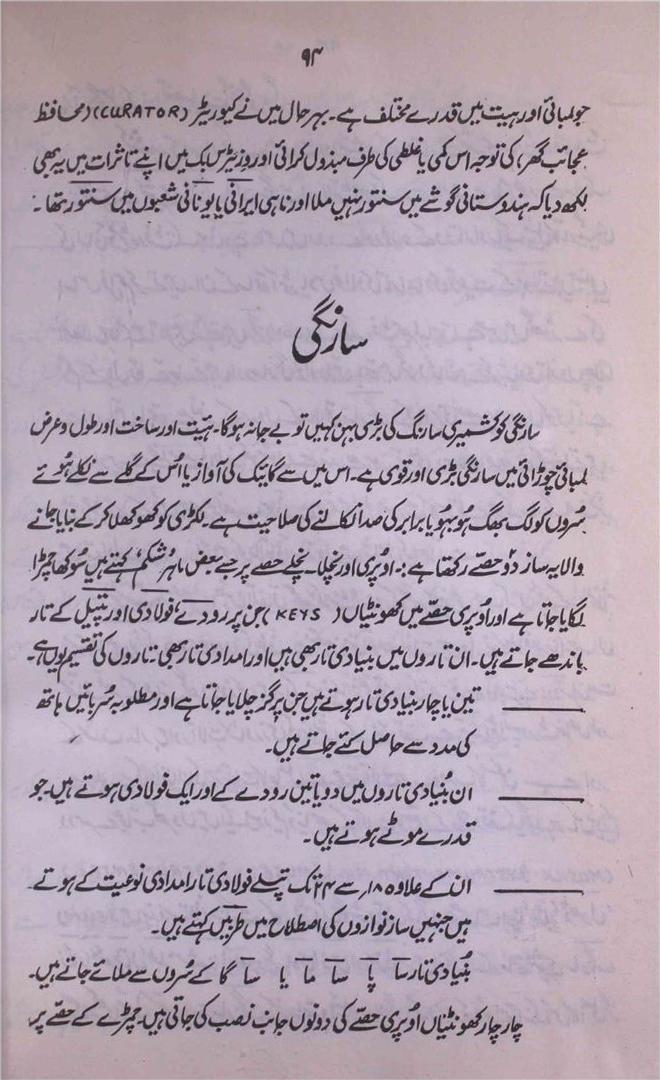 ۹۳
جو لمبائی اور ہیت میں قدرے مختلف ہے۔ بہر حال میں نے کیوریٹر (CURATOR) (محافظ
عجائب گھر) کی توجہ اس کمی یا غلطی کی طرف مبذول کرائی اور وزیٹرس بک میں اپنے تاثرات میں یہ بھی
لکھ دیا کہ ہندوستانی گوشے میں سنتور نہیں ملا اور نا ہی ایرانی یا یونانی شعبوں میں سنتور تھا۔
سارنگی
سارنگی کو کشمیری سارنگ کی بڑی بہن کہیں تو بے جا نہ ہوگا۔ ہیت اور ساخت اور طول و عرض
لمبائی چوڑائی میں سارنگی بڑی اور قوی ہے۔ اس میں سے گائیک کی آواز یا اُس کے گلے سے نکلے ہوئے
سُروں کو لگ بھگ ہو بہو یا برابر کی صدا نکالنے کی صلاحیت ہے۔ لکڑی کو کھوکھلا کر کے بنایا جانے
والا یہ ساز دو حصے رکھتا ہے:۔ اوپری اور نچلا۔ نچلے حصے پر جسے بعض ماہر شکم، کہتے ہیں سُوکھا چمڑا
لگایا جاتا ہے اور اُوپری حصّے میں کھونٹیاں (KEYS) جن پر رودے، فولادی اور پیتل کے تار
باندھے جاتے ہیں۔ ان تاروں میں بنیادی تار بھی ہیں اور امدادی تار بھی۔ تاروں کی تقسیم یوں ہے۔
تین یا چار بنیادی تار ہوتے ہیں جن پر گز چلایا جاتا ہے اور مطلوبہ سُر بائیں ہاتھ
کی مدد سے حاصل کئے جاتے ہیں۔
ان بُنیادی تاروں میں دو یا تین رودے کے اور ایک فولادی ہوتے ہیں۔ جو
قدرے موٹے ہوتے ہیں۔
ان کے علاوہ ۱۸ سے ۲۴ تک پتلے فولادی تار امدادی نوعیت کے ہوتے
ہیں جنہیں ساز نوازوں کی اصطلاح میں طربیں کہتے ہیں۔
بُنیادی تار سا پا سا ما یا سا گا کے سُروں سے ملائے جاتے ہیں۔
چار چار کھونٹیاں اُوپری حصّے کی دونوں جانب نصب کی جاتی ہیں۔ چمڑے کے حصّے پر